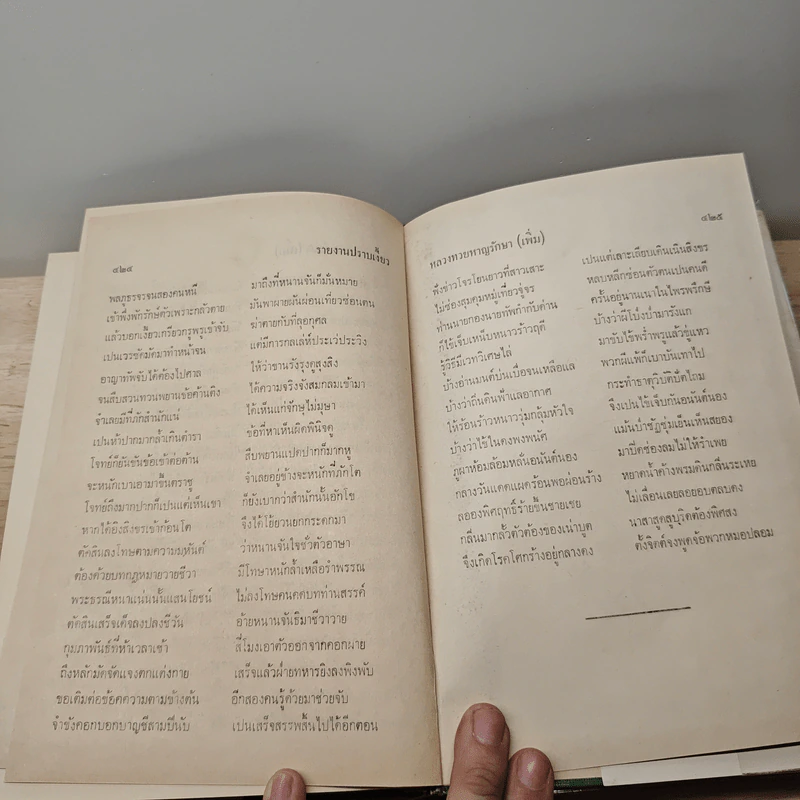 ๔๒๔
รายงานปราบเงี้ยว
พลภูธรจวจนสองคนหนี มาถึงที่หนานจันก็มั่นหมาย
เข้าพึ่งพักรักษ์ตัวเพราะกลัวตาย มันพาผายผันผ่อนเที่ยวซ่อนคน
แล้วบอกเงี้ยวเกรียวกรูพรูเข้าจับ ฆ่าตายกับที่ลุอกุศล
เปนเรขซัดมัดมาทำหน้าจน แต่มีการกลเล่ห์ประเวประวิง
อาญาทัพจับได้ต้องไปศาล ให้ว่าขานรังรุงดูสุงสิง
จนสืบสวนทวนพยานข้อค้านติง ได้ความจริงจังสมกลมเข้ามา
จำเลยมีที่ภักสำนักแน่ ได้เห็นแก่จักษุไม่มุษา
เปนห้าปากมากล้ำเกินตำรา ข้อที่หาเห็นผิดพินิจดู
โจทย์ก็ยันขันข้อเข้าต่อต้าน สืบพยานแปดปากก็มากหู
จะหนักเบาเอามาขึ้นตราชู จำเลยอยู่ข้างจะหนักที่ภักโต
โจทย์ถึงมากปากก็เปนแต่เห็นเขา ก็ยังเบากว่าสำนักนั้นอักโข
หากได้อิงสิงขรเข้าก้อนโต จึงได้โย้ยวนยกกระดกมา
ตัดสินลงโทษตามความมหันต์ ว่าหนานจันใจชั่วตัวอาษา
ต้องด้วยบทกฎหมายวายชีวา มีโทษาหนักล้ำเหลือรำพรรณ
พระธรณีหนาแน่นนั้นแสนโยชน์ ไม่ลงโทษคนคดบทท่านสรรค์
ตัดสินเสร็จเด็จลงปลงชีวัน อ้ายหนานจันธิมาชีวาวาย
กุมภาพันธ์ที่ห้าเวลาเช้า สี่โมงเอาตัวออกจากคอกผาย
ถึงหลักมัดจัดแจงตกแต่งกาย เสร็จแล้วฝ่ายทหารยิงลงพิงพับ
ขอเติมต่อข้อคความตามข้างต้น อีกสองคนรู้ด้วยมาช่วยจับ
จำขังคอกบอกบาญชีสามปีนับ เปนเสร็จสรรพสิ้นไปได้อีกตอน
หลวงทวยหาญรักษา (เพิ่ม)
๔๒๕
ฟังข่าวโจรโยนยาวที่ลาวเสาะ เปนแต่เลาะเลียบเดินเนินสิงขร
ไม่ช่องสุมคุมหมู่เที่ยวจู่จร หลบหลีกซ่อนตัวตนเปนคนดี
ท่านนายกองนายทัพกำกับด่าน ครั้นอยู่นานเนาในไพรพรึกษี
ก็ไข้เจ็บเหน็บหนาวร้าวฤดี บ้างว่าผีโป่งป่ามารังแก
รู้วิธีมีเวทวิเศษไล่ มาขับไข้พร่ำพรูแล้วขู่แหว
บ้างอ่านมนต์บ่นเบื่อจนเหลือแล พวกผีแพ้ก็เบาบันเทาไป
บ้างว่าถิ่นดินฟ้าแลอากาศ กระทำธาตุวิบัติปัดไถม
ให้ร้อนร้าวหนาววุ่มกลุ้มหัวใจ จึงเปนไข้เจ็บกันอนันต์นอง
บ้างว่าไข้ในดงพงพนัศ แม้นป่าชัฏชุ่มเย็นเห็นสยอง
ภูผาห้อมล้อมหลั่นอนันต์นอง มาปิดช่องลมไม่ให้รำเพย
กลางวันแดดแผดร้อนพอผ่อนร้าง หยาดน้ำค้างพรมดินกลิ่นระเหย
ลอองพิศฤทธิ์ร้ายขึ้นชายเชย ไม่เลื่อนเลยลอยอบตลบดง
กลิ่นมากลั้วตัวต้องของเน่าบูด นาสาสูดสูบริดต้องพิศสง
จึงเกิดโรคโศกร้างอยู่กลางดง ตั้งจิตต์จงพูดจ้อพวกหมอปลอม